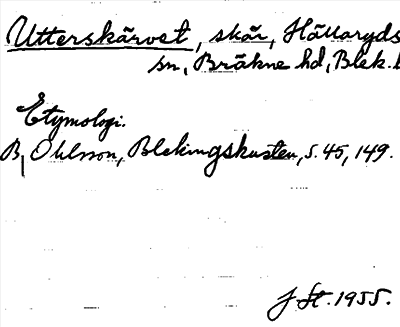 Utterskärvet, skär, Hällaryds
sn, Bräkne hd, Blek. l
Etymologi.
B, Ohlsson, Blekingskusten, s. 45, 149.
J St. 1955.